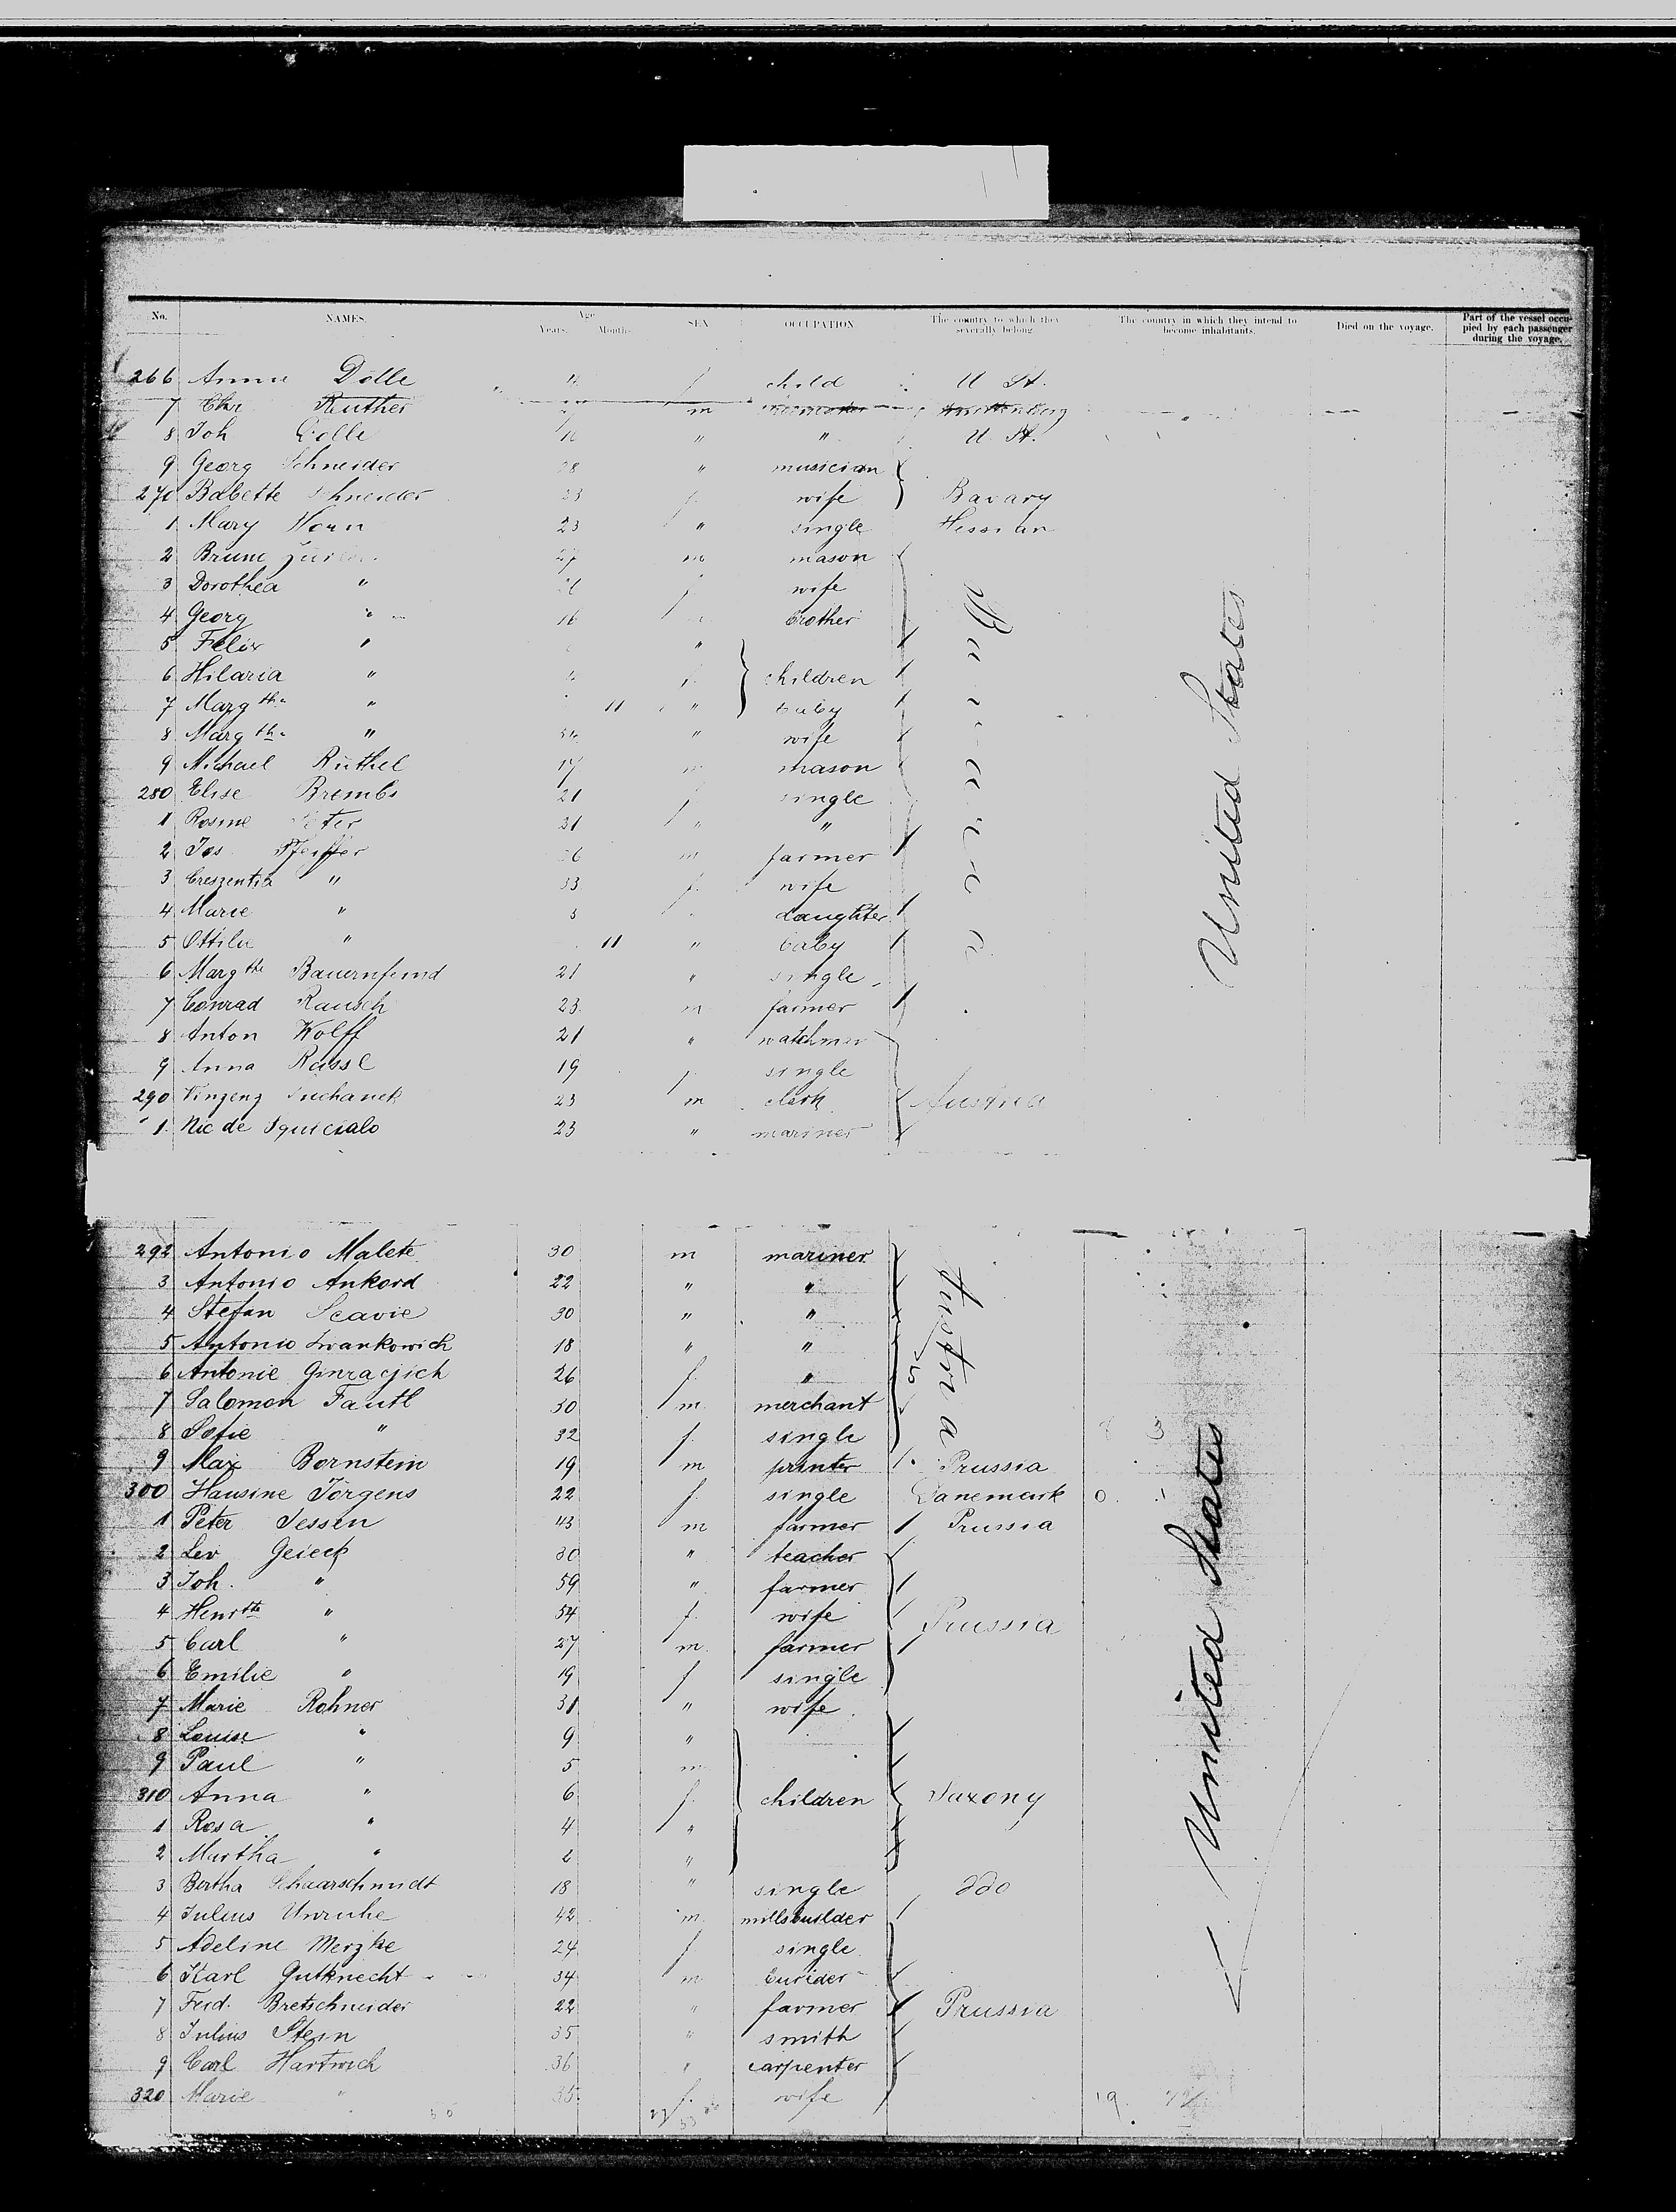 No. NAMES. Age Years. Months SEX OCCUPATION The country to which they severally belong The country in which they intend to become inhabitants. Died on the voyage. Part of the vessel occupied by each passenger during the voyage.
266 Annie Dölle f child U St.
7 Chr Reuther m
8 Joh Dölle " " U St.
9 Georg Schneider 28 " musician
270 Babette Schneider 23 f. wife Bavary
1 Mary Horn 23 " single Hessian
2 Bruno 27 m mason
3 Dorothea " f wife
4 Georg " 16 brother
5 Felix " "
6 Hilaria " f. children
7 Margthe " 11 " baby
8 Margthe " " wife
9 Michael Rüthel 17 m mason
280 Elise Brembs 21 f single
1 Rosine 31 " "
2 Jos Pfeiffer 36 m farmer
3 Creszentia " 33 f. wife
4 Marie " 3 daughter
5 Ottilie " 11 " baby
6 Margthe Bauernfeind 21 " single
7 Conrad Rausch 23 m farmer
8 Anton Wolff 21 " watchman
9 Anna Rassl 19 f. single
290 Vinzenz Suchanek 23 m clerk Austria
1 Nic de Squicialo 23 " mariner
Bavaria
United States
292 Antonio Malete 30 m mariner
3 Antonio Ankord 22 " "
4 Stefan Scavie 30 " "
5 Antonio Ivankowich 18 " "
6 Antonie Ginracjich 26 f. "
7 Salomon Fantl 50 m merchant
8 Sofie " 32 f. single
Austria
9 Max Bornstein 19 m printer Prussia
300 Hansine Jörgens 22 f. single Danemark
1 Peter Jessen 43 m farmer Prussia
2 Leo Geieck 30 " teacher
3 Joh. " 59 " farmer
4 Henrtte " 54 f. wife Prussia
5 Carl " 27 m. farmer
6 Emilie " 19 f single
7 Marie Rohner 31 " wife
8 Louise " 9 "
9 Paul " 5 m
310 Anna " 6 f. children Saxony
1 Rosa " 4 "
2 Martha " 2 "
3 Bertha Schaarschmidt 18 " single ddo
4 Julius Unruhe 42 m. millsbuilder
5 Adeline Merzke 24 f single
6 Karl Gutknecht 34 m
7 Ferd. Bretschneider 22 " farmer Prussia
8 Julius Stein 35 " smith
9 Carl Hartwich 36 " carpenter
320 Marie " 35 f. wife
United States